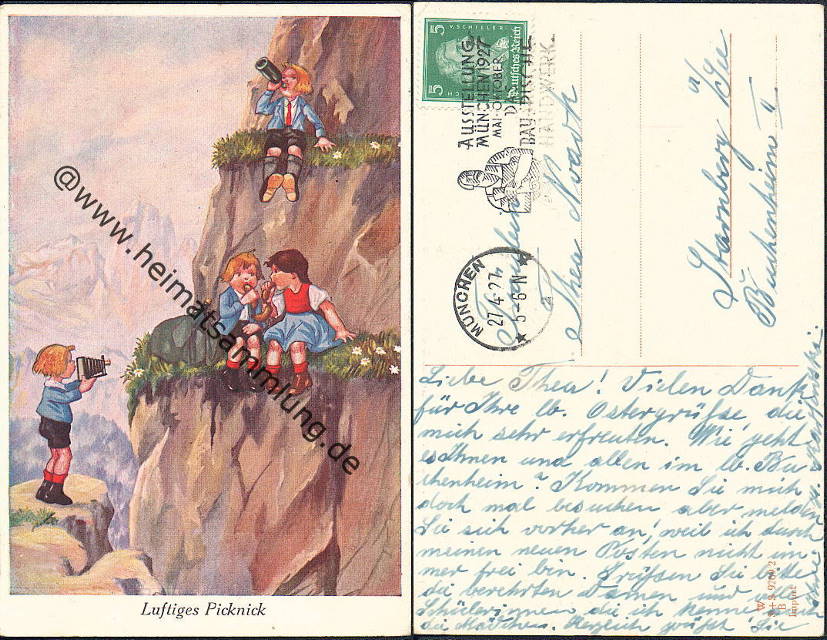 @www.heimatsammlung.de
Luftiges Picknick
5 V. SCHILLER 5
Deutsches Reich
AUSSTELLUNG
MÜNCHEN 1927
MAI-OKTOBER
DAS
BAYRISCHE
HANDWERK
MÜNCHEN
27.4.27
5-6 N
Fräulein
Thea
Starnberg a/See
Buchenheim
Liebe Thea! Vielen Dank
für Ihre lb. Ostergrüße, die
mich sehr erfreuten. Wie geht
es Ihnen und allen im lb. Bu
chenheim? Kommen Sie mich
doch mal besuchen aber melden
Sie sich vorher an, weil ich durch
meinen neuen Posten nicht im
mer frei bin. Grüßen Sie bitte
die verehrten Damen und
Schülerinnen die ich kenne, auch
die Herzlich grüßt Sie
W
B
Import